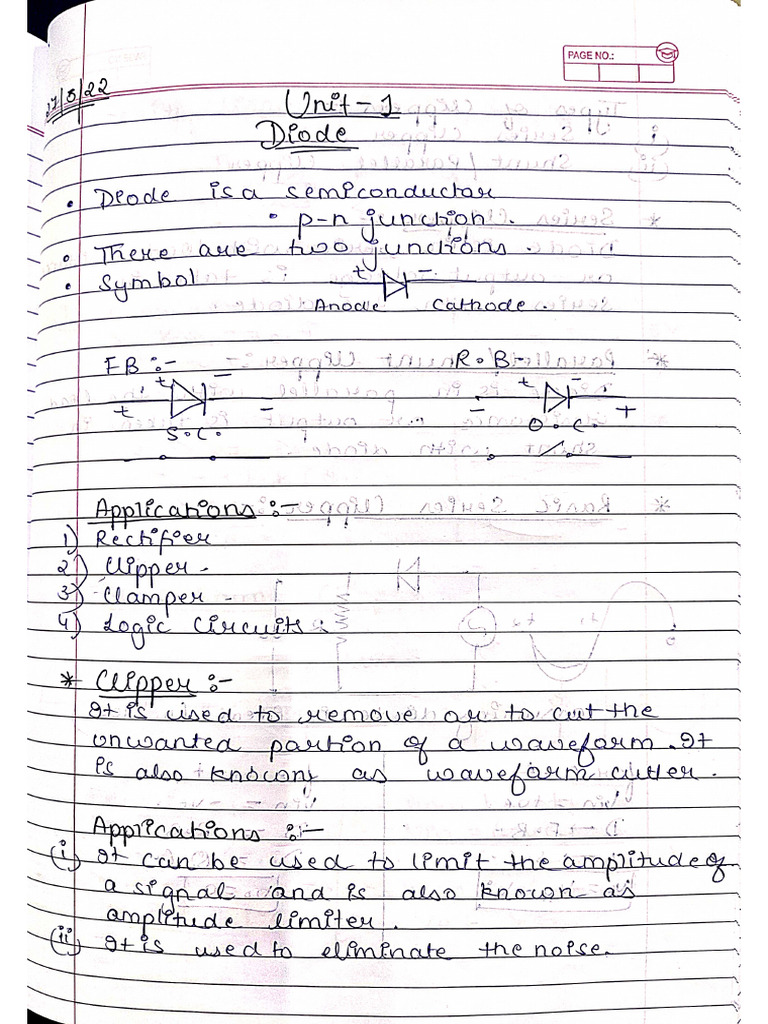 PAGE NO.:
17/5/22
Unit-1
Diode
• Diode is a semiconductor
• p-n junction.
• There are two junctions.
• Symbol + -
Anode Cathode.
FB :- R.B-
+ - + -
+ - - +
S.C. O.C.
Applications :-
1) Rectifier
2) Clipper.
3) Clamper.
4) Logic Circuits.
* Clipper :-
It is used to remove or to cut the
unwanted portion of a waveform. It
is also known as waveform cutter.
Applications :-
(i) It can be used to limit the amplitude of
a signal and is also known as
amplitude limiter.
(ii) It is used to eliminate the noise.